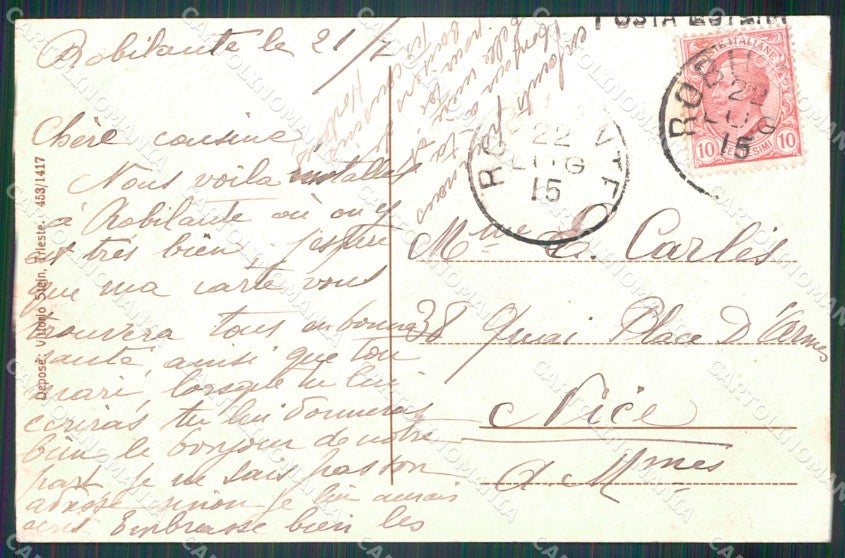 Robilante le 21/7
Chère cousine
Nous voila installés
à Robilante où on y
est très bien, j'espère
que ma carte vous
trouvera tous en bonne
santé, ainsi que ton
mari, lorsque tu lui
ecriras tu lui donneras
bien le bonjour de notre
part je ne sais pas son
adresse sinon je lui aurais
ecrit Embrasse bien les
enfants pour nous
bonjour à ta
belle
nous
Mme C. Carlès
38 Quai Place D'Armes
Nice
A. Mmes
Deposé. Vittorio Stein, Trieste. 453/1417
POSTA ESTERI
22
LUG
15
ROBIL
22
LUG
15
POSTE ITALIANE
10 CENTESIMI 10
CARTOLINOMANIA